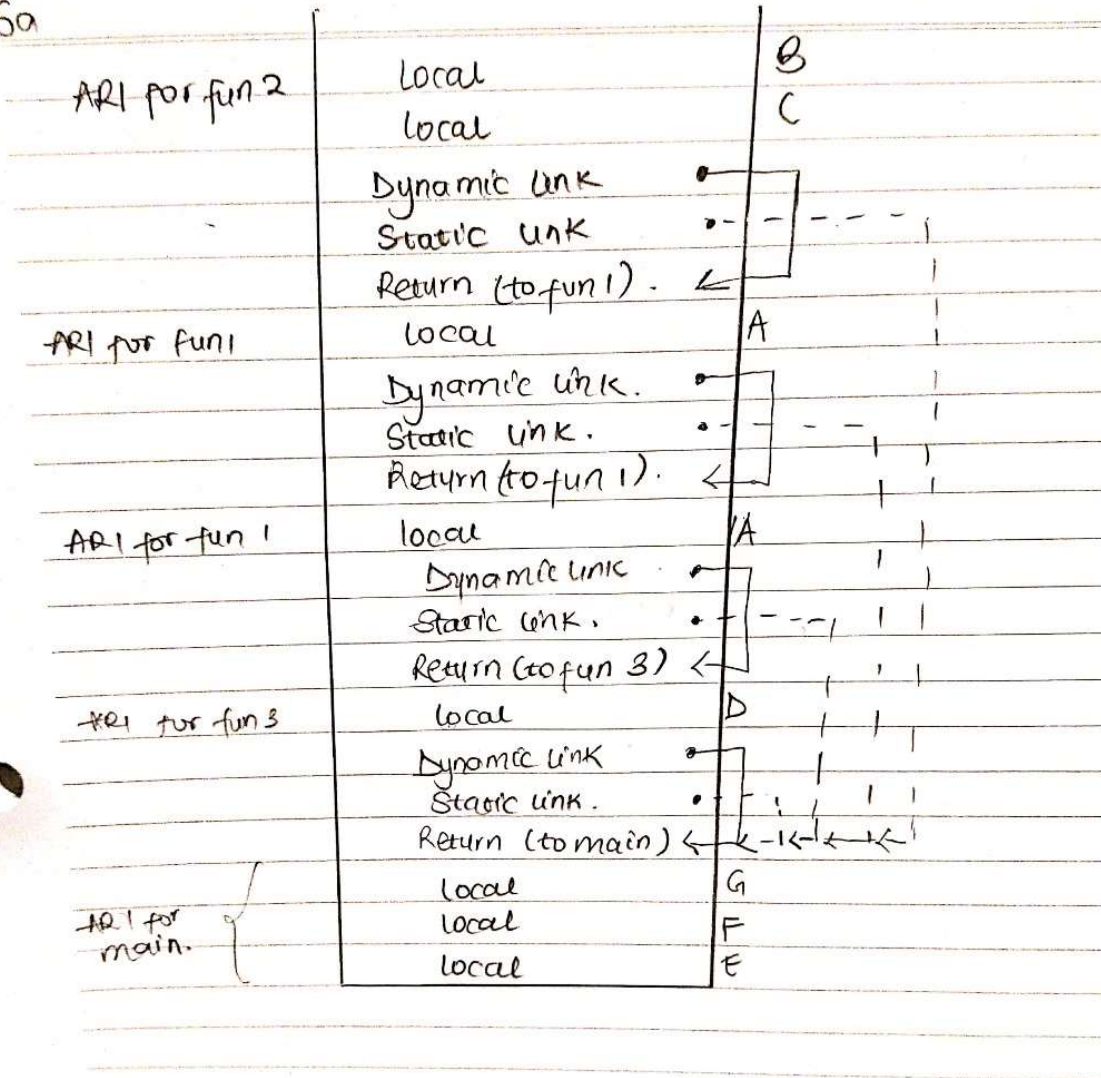 5a
ARI for fun 2 Local B
local C
Dynamic link
Static link
Return (to fun 1).
ARI for fun 1 local A
Dynamic link.
Static link.
Return (to fun 1).
ARI for fun 1 local A
Dynamic link
Static link.
Return (to fun 3)
ARI for fun 3 local D
Dynamic link
Static link.
Return (to main)
local G
ARI for main. local F
local E